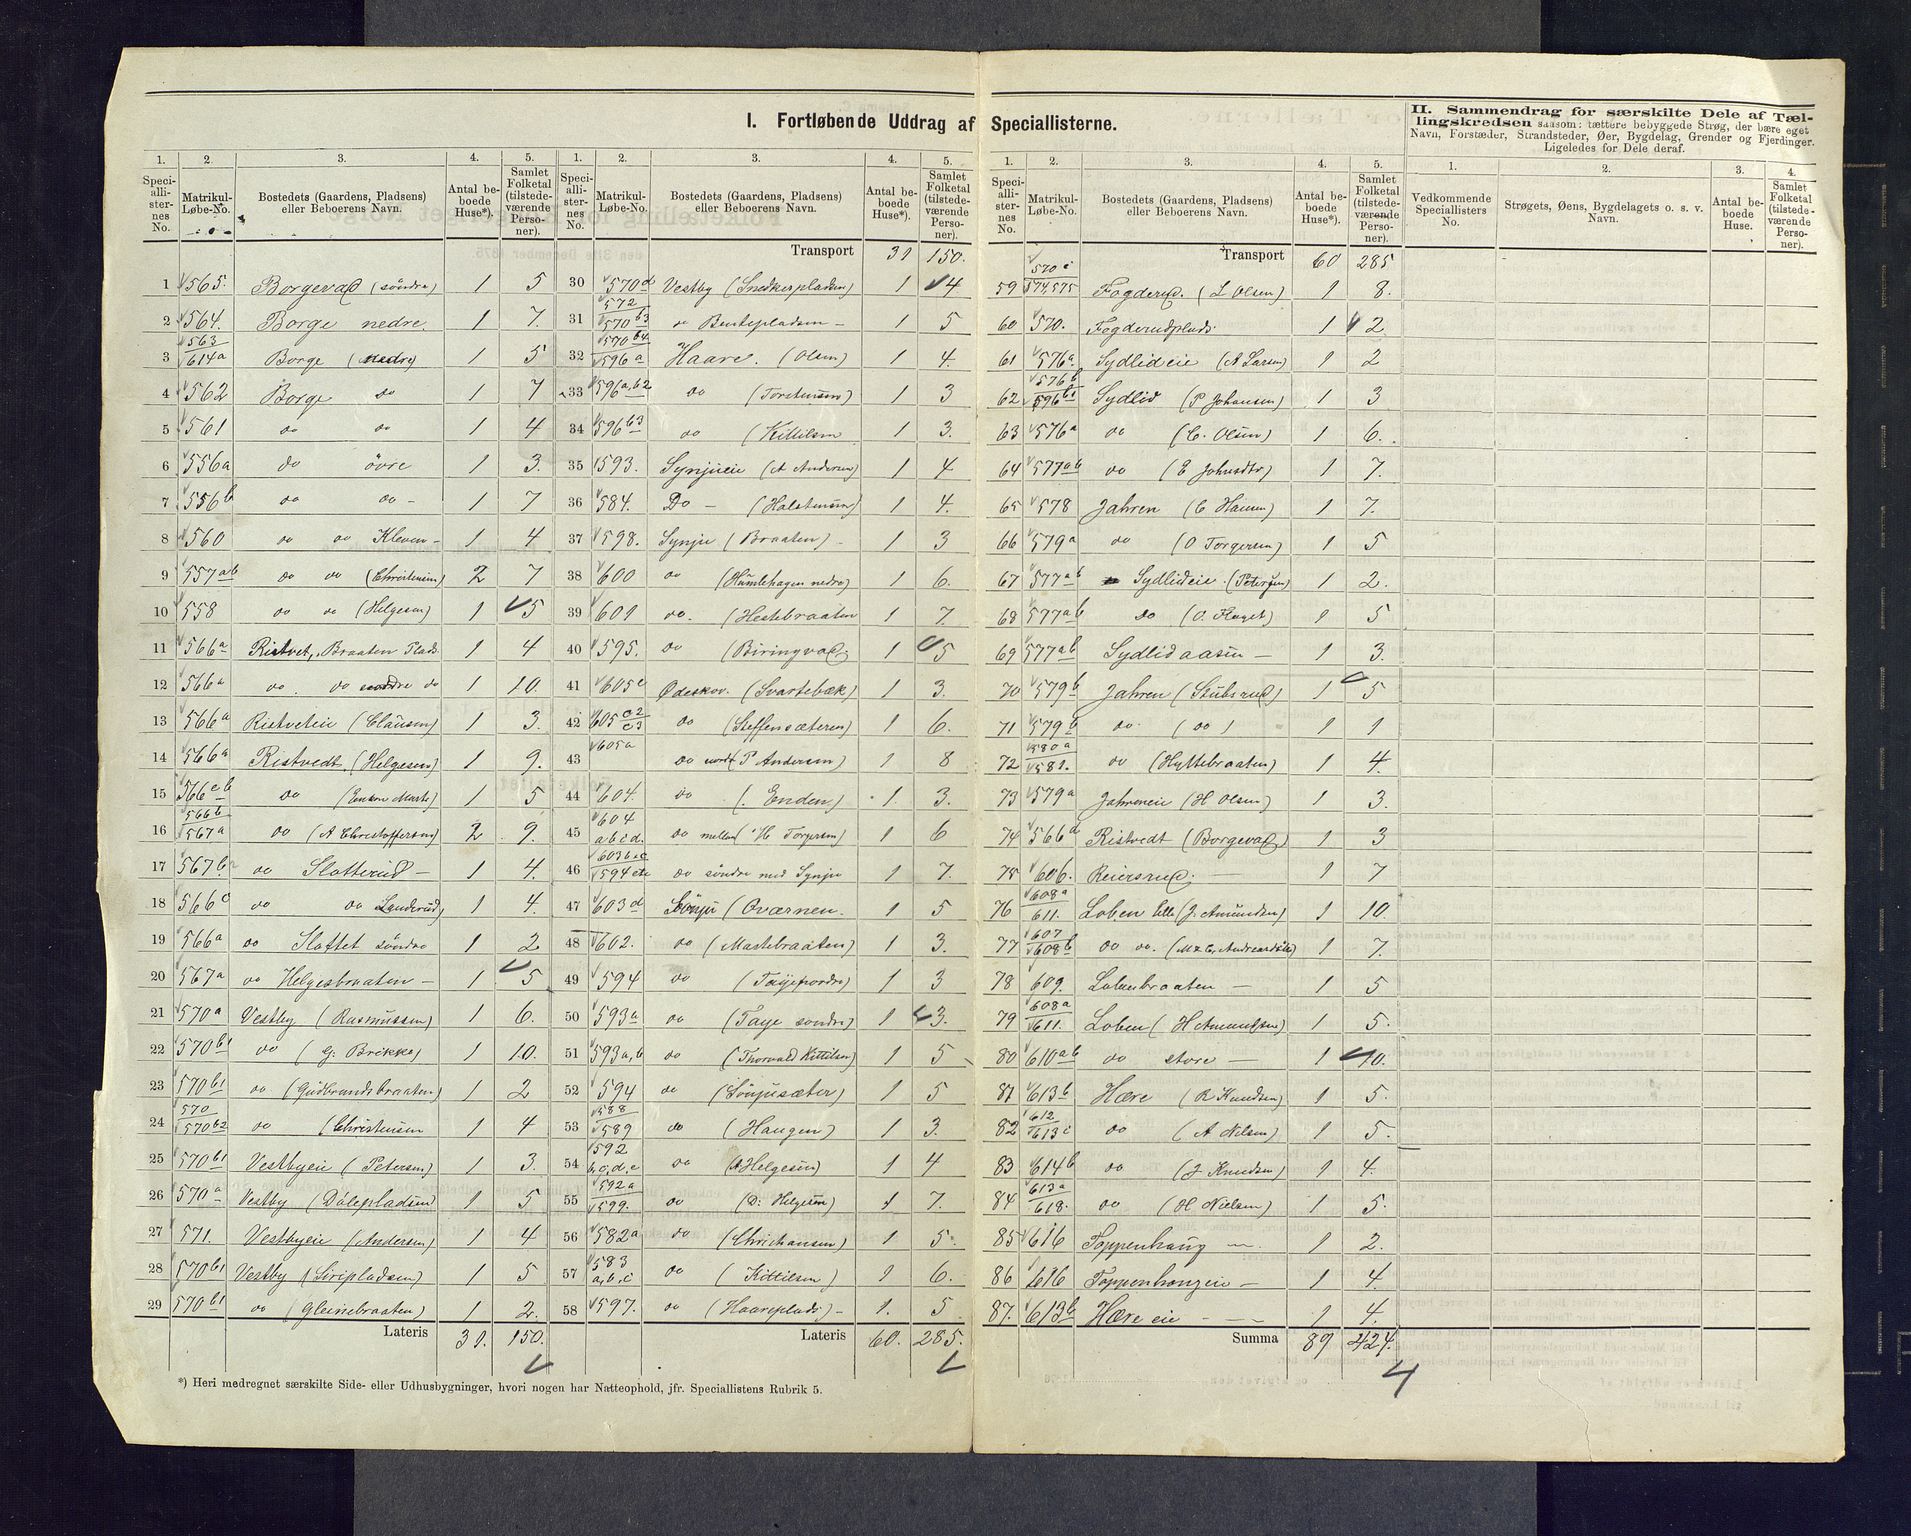 I. Fortløbende Uddrag af Speciallisterne.
II. Sammendrag for særskilte Dele af Tæl-
lingskredsen saasom: tættere bebyggede Strøg, der bære eget
Navn, Forstæder, Strandsteder, Øer, Bygdelag, Grender og Fjerdinger.
Ligeledes for Dele deraf.
1. 2. 3. 4. 5.
Speciallisternes No. Matrikul-Løbe-No. Bostedets (Gaardens, Pladsens) eller Beboerens Navn. Antal beboede Huse*). Samlet Folketal (tilstedeværende Personer).
1 565. Borgevad (söndre) 1 5
2 564. Borge nedre. 1 7.
3 563/614a Borge (nedre) 1 5
4 562 Borge do 1 7
5 561 do do 1 4
6 556a do övre 1 3.
7 556b do do - 1 7
8 560 do do Kleven - 1 4
9 557ab do do (Christensen) 2 7
10 558 do do (Helgesen) 1 5
11 566a Ristvet, Braaten Plads 1 4
12 566a do. do do 1 10.
13 566a Ristveteie (Clausen) 1 3.
14 566a Ristvedt. (Helgesen) 1 9.
15 566cb do 1 5
16 566b/567a do (A Christoffersen) 2 9.
17 567b do Slotterud - 1 4.
18 566c do do Landerud, 1 4.
19 566a do Slottet söndre 1 2
20 567a do Helgesbraaten - 1 5
21 570a Vestby (Rasmussen) 1 6.
22 570b1 do (G: Brikke) 1 10.
23 570b1 do (Gudbrandsbraaten) 1 2
24 570/570b2 do (Christensen 1 4
25 570b1 Vestbyeie (Petersen) 1 3.
26 570a Vestby (Dölepladsen) 1 5
27 571. Vestbyeie (Andersen) 1 4
28 570b1 Vestby (Siripladsen) 1 5
29 570b1 do (Gleinebraaten) 1 2.
Lateris 31. 150.
1. 2. 3. 4. 5.
Speciallisternes No. Matrikul-Løbe-No. Bostedets (Gaardens, Pladsens) eller Beboerens Navn. Antal beboede Huse*). Samlet Folketal (tilstedeværende Personer).
Transport 31 150.
30 570d Vestby (Snedkerpladsen) 1 4
31 572/570b3 do Bentepladsen - 1 5
32 570b4/596a Haare. (Olsen) 1 4.
33 596a,b2 do (Torstensen) 1 3
34 596b3 do (Kittilsen 1 3.
35 593. Synjueie (A Andersen) 1 4
36 584. Do - (Halstensen) 1 4.
37 598. Synju (Braaten) - 1 3
38 600 do (Humlehagen nedre) 1 6.
39 601 do. (Hestebraaten 1 7.
40 595. do (Biringvad. 1 5
41 605c Ødeskov. (Svartebæk) 1 3.
42 605c2/c3 do (Steffensæteren) 1 6.
43 605a do nordre (P Andersen) 1 8
44 604. do (. Enden,) 1 3.
45 604 abcd. do mellem (H Torgersen) 1 6
46 603bac/594 etc do söndre med Synju 1 7.
47 603d Sönju (Oværnen. 1 5
48 602. do (Martebraaten) 1 3.
49 594 do (Töyenordre) 1 3
50 593a do (Taye söndre) 1 3.
51 593a,b do (Thorvald Kittilsen) 1 5
52 594 do (Sönjusæter) 1 5
53 588/589 do (Haugen) 1 3.
54 592 b,c,d,e do (A Helgesen) 1 4
55 592a/599. do (D: Helgesen) 1 7.
56 582a do (Christiansen) 1 5.
57 583 a,b,c do (Kittilsen) 1 6.
58 597. do (Haareplads) - 1. 5.
Lateris 60. 285.
1. 2. 3. 4. 5.
Speciallisternes No. Matrikul-Løbe-No. Bostedets (Gaardens, Pladsens) eller Beboerens Navn. Antal beboede Huse*). Samlet Folketal (tilstedeværende Personer).
Transport 60 285
59 570c/574,575 Fogderud. (L Olsen) 1 8.
60 570. Fogderudplads. 1 2.
61 576a Sydlideie (A Larsen) 1 2
62 576b/596b1 Sydlid (P Johansen) 1 3
63 576a do (C. Olsen) 1 6.
64 577ab do (E Johnsdtr) 1 7.
65 578 Jahren (C Hansen) 1 7.
66 579a do (O Torgersen) 1 5
67 577ab Sydlideie. (Petersen) 1 2.
68 577ab Do (O. Flaget) 1 5
69 577ab Sydlidaasen - 1 3.
70 579b Jahren (Stubsrud) 1 5
71 579b do (do) 1 1
72 580a/581. do (Hyttebraaten) 1 4.
73 579a Jahreneie (H Olsen) 1 3.
74 566d Ristvedt (Borgevad) 1 3
75 606. Reiersrud. - 1 7
76 608a/611. Loben lille (J. Amundsen) 1 10.
77 607/608b do do. 1 7.
78 609. Lobenbraaten - 1 5
79 608a/611. Loben (H Amundsen) 1 5.
80 610ab do store - 1 10.
81 613b Hære (R Knudsen) 1 5.
82 612/613c do (A Nilsen) 1 5.
83 614b do (J Knudsen) 1 4.
84 613a/618. do (H Nielsen) 1 5.
85 616 Toppenhaug - 1 2.
86 616 Toppenhougeie - 1 4.
87. 613b Hære eie - 1 4.
Summa 89 424.
4
1. 2. 3. 4.
Vedkommende Speciallisters No. Strøgets, Øens, Bygdelagets o. s. v. Navn. Antal beboede Huse. Samlet Folketal (tilstedeværende Personer).
*) Heri medregnet særskilte Side- eller Udhusbygninger, hvori nogen har Natteophold, jfr. Speciallistens Rubrik 5.